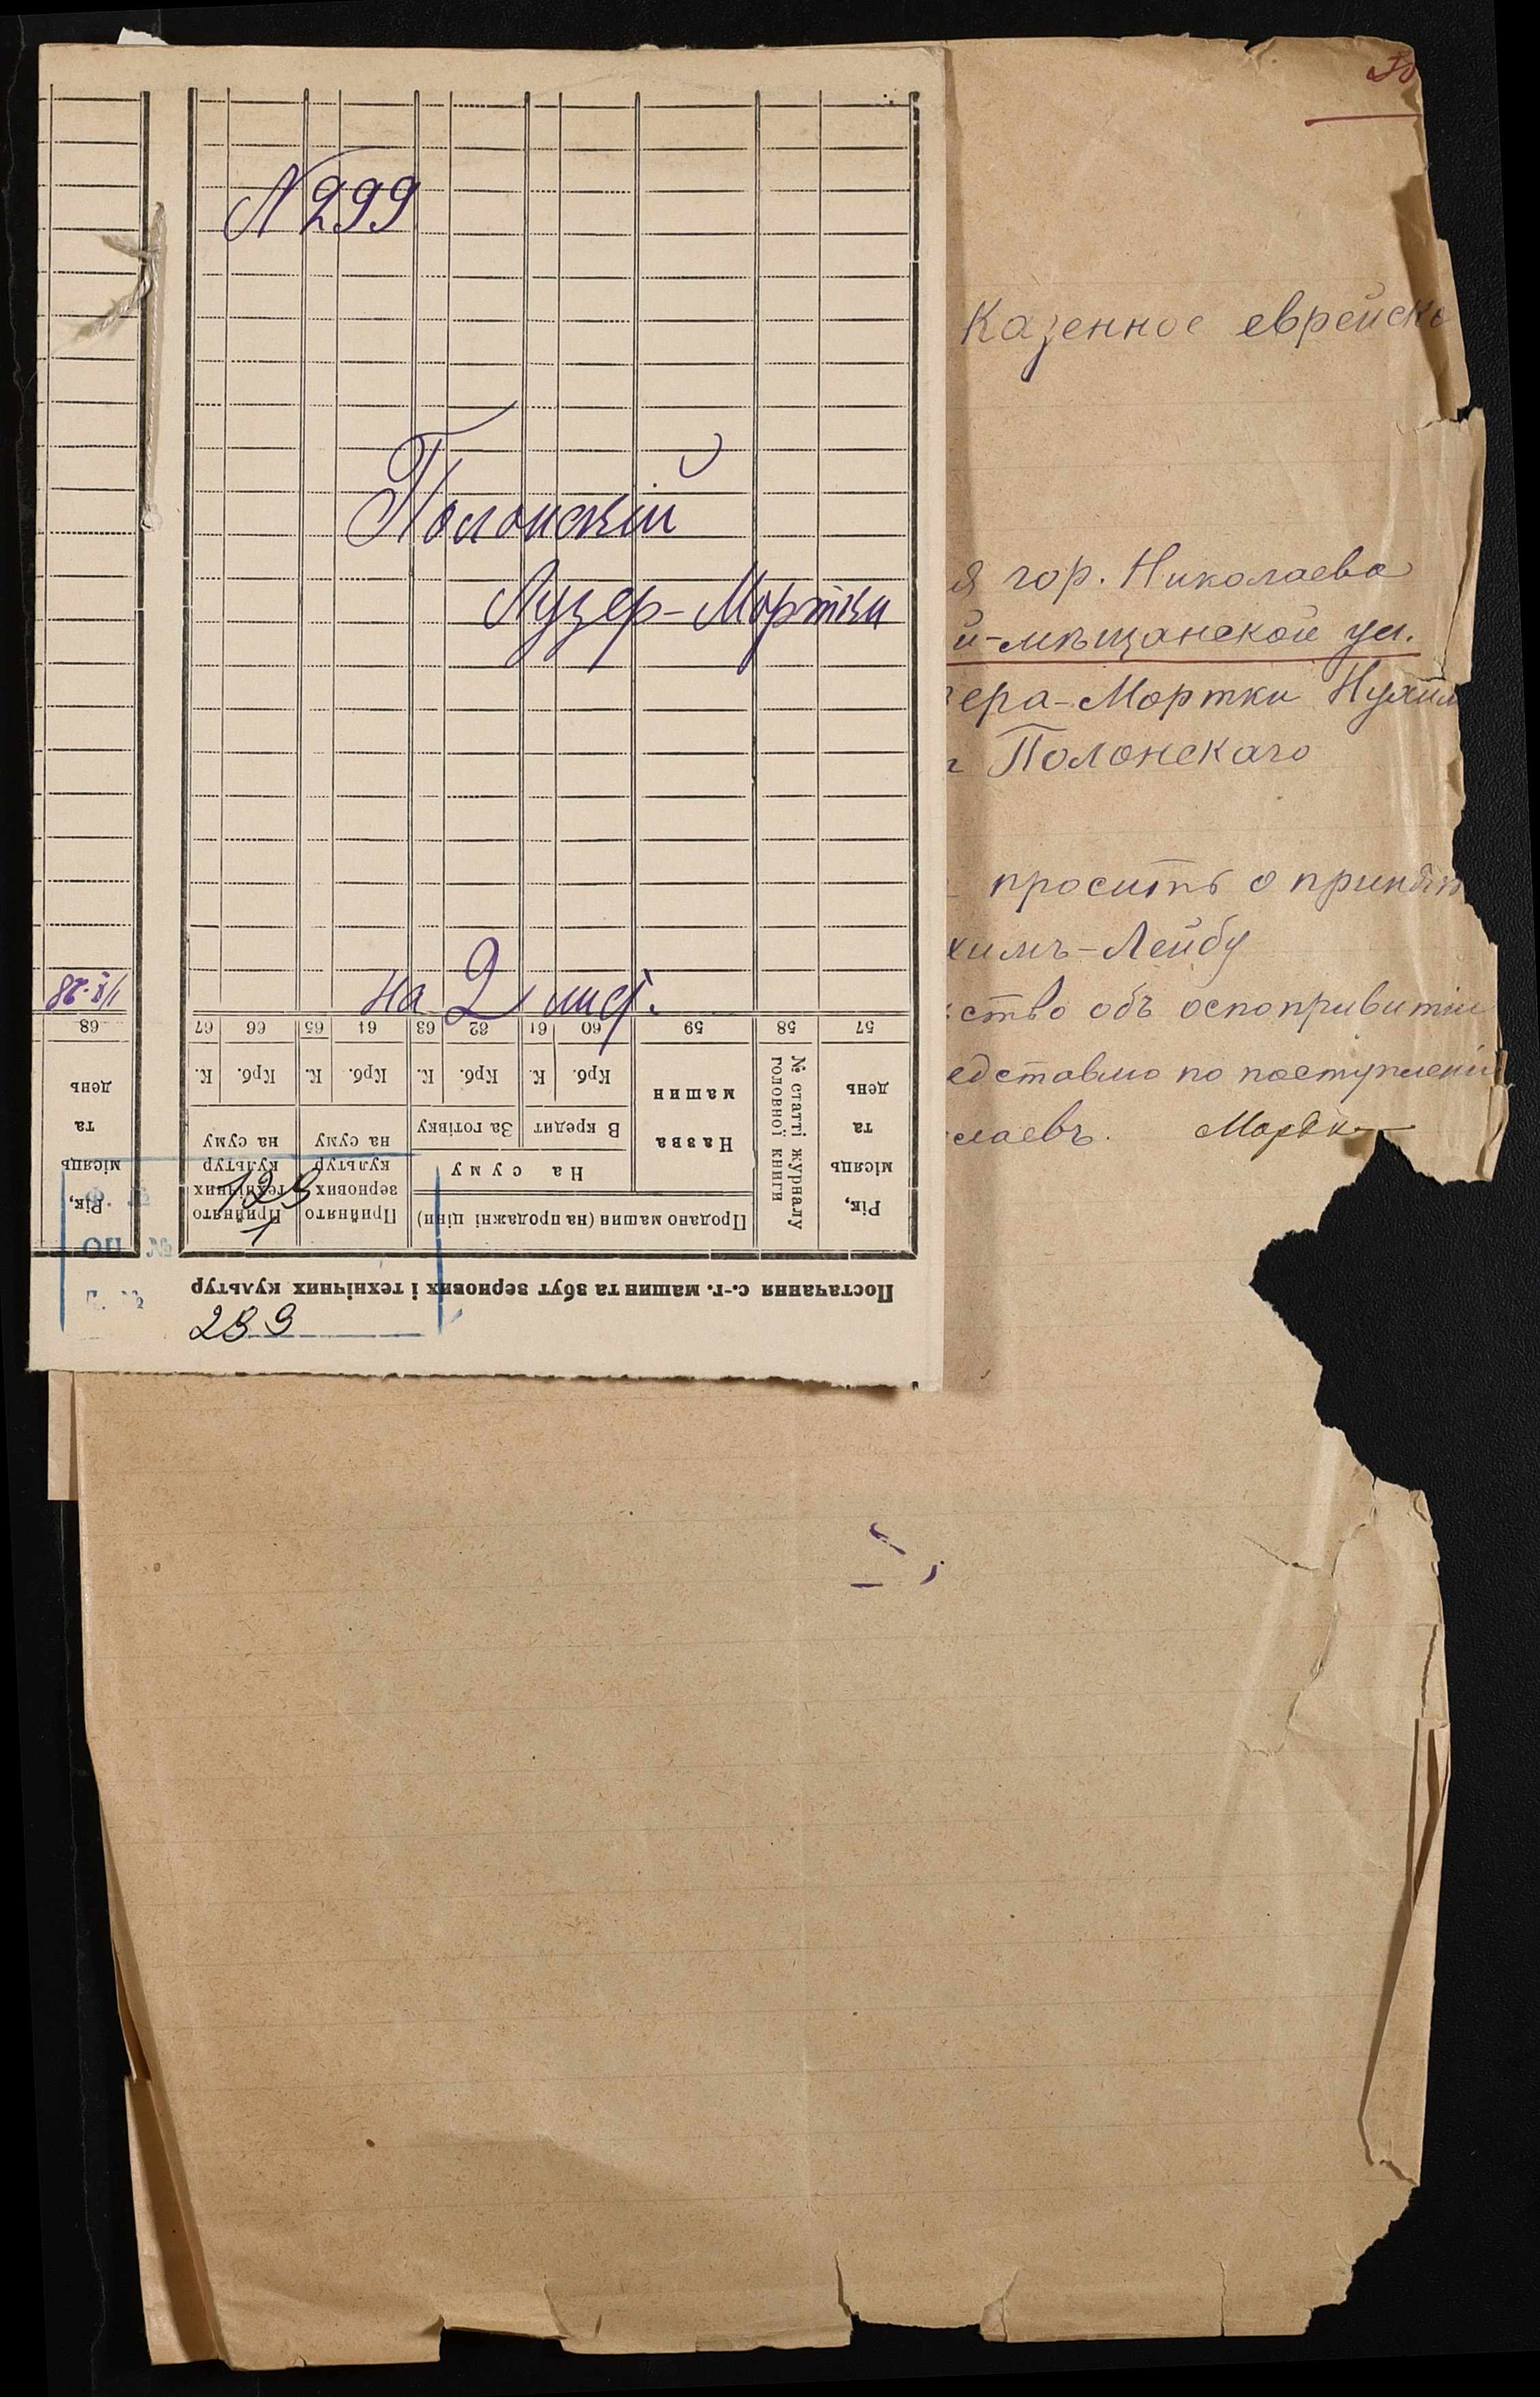 №299
Полонскій
Лузер-Мортки
на 2 лист.
1/X-28
67 66 65 64 63 62 61 60 59 58 57
68
К. Крб. К. Крб. К. Крб. К. Крб.
Назва машин
№ статті журналу головної книги
Рік, місяць та день
Рік, місяць та день
За готівку
В кредит
На суму
Продано машин (на продажні ціни)
Прийнято зернових культур на суму
Прийнято технічних культур на суму
Постачання с.-г. машин та збут зернових і технічних культур
129
1
299
50
Казенное еврейско
я гор. Николаева
й-мѣщанской ул.
ера-Мортки Нухим
Полонскаго
проситъ о принят
химъ-Лейбу
ство объ оспопривитіи
едставлю по поступленіи
лаевъ.